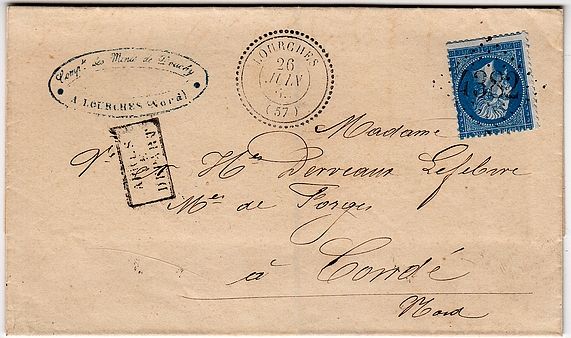 Compie. des Mines de Douchy
A LOURCHES (Nord)
LOURCHES
26
JUIN
(57)
4382
APRÈS
LE
DÉPART
Madame
Vve. Hri Derveaux Lefebvre
Mes de Forges
à Condé
Nord